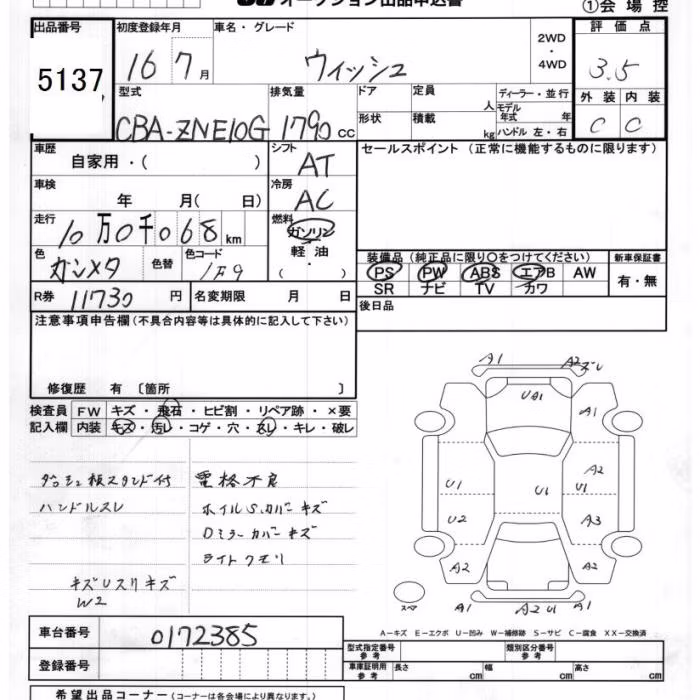 オークション出品申込書
①会場控
出品番号
5137
初度登録年月
16 7月
車名・グレード
ウィッシュ
2WD
・
4WD
評価点
3.5
型式
CBA-ZNE10G
排気量
1790cc
ドア
定員
人
ディーラー・並行
モデル年式 年
形状
積載
kg
ハンドル 左・右
外装 内装
C C
車歴
自家用・( )
シフト
AT
セールスポイント (正常に機能するものに限ります)
車検
年 月( 日)
冷房
AC
走行
10万0千068km
燃料
ガソリン
軽油
・
( )
色
ガンメタ
色替
色コード
1F9
装備品 (純正品に限り〇をつけてください)
新車保証書
PS PW ABS エアB AW
SR ナビ TV カワ
有・無
R券 11730円
名変期限 月 日
後日品
注意事項申告欄(不具合内容等は具体的に記入して下さい)
修復歴 有〔箇所 〕
検査員
記入欄
FW キズ・飛石・ヒビ割・リペア跡・×要
内装 キズ・汚レ・コゲ・穴・スレ・キレ・破レ
ダッシュ板スタンド付
ハンドルスレ
キズUスリキズ
W2
電格不良
ホイルS.カバーキズ
Dミラーカバーキズ
ライトクモリ
A1 A2 ズレ
UA1 A1
A2
U1 U1 U1
U2 A3
A2 A2
スペア A1 A2 U1 A1
A－キズ E－エクボ U－凹み W－補修跡 S－サビ C－腐食 XX－交換済
車台番号
0172385
登録番号
型式指定番号
参考
類別区分番号
参考
車庫証明用
参考
長さ cm 幅 cm 高さ cm
希望出品コーナー (コーナーは各会場により異なります。)